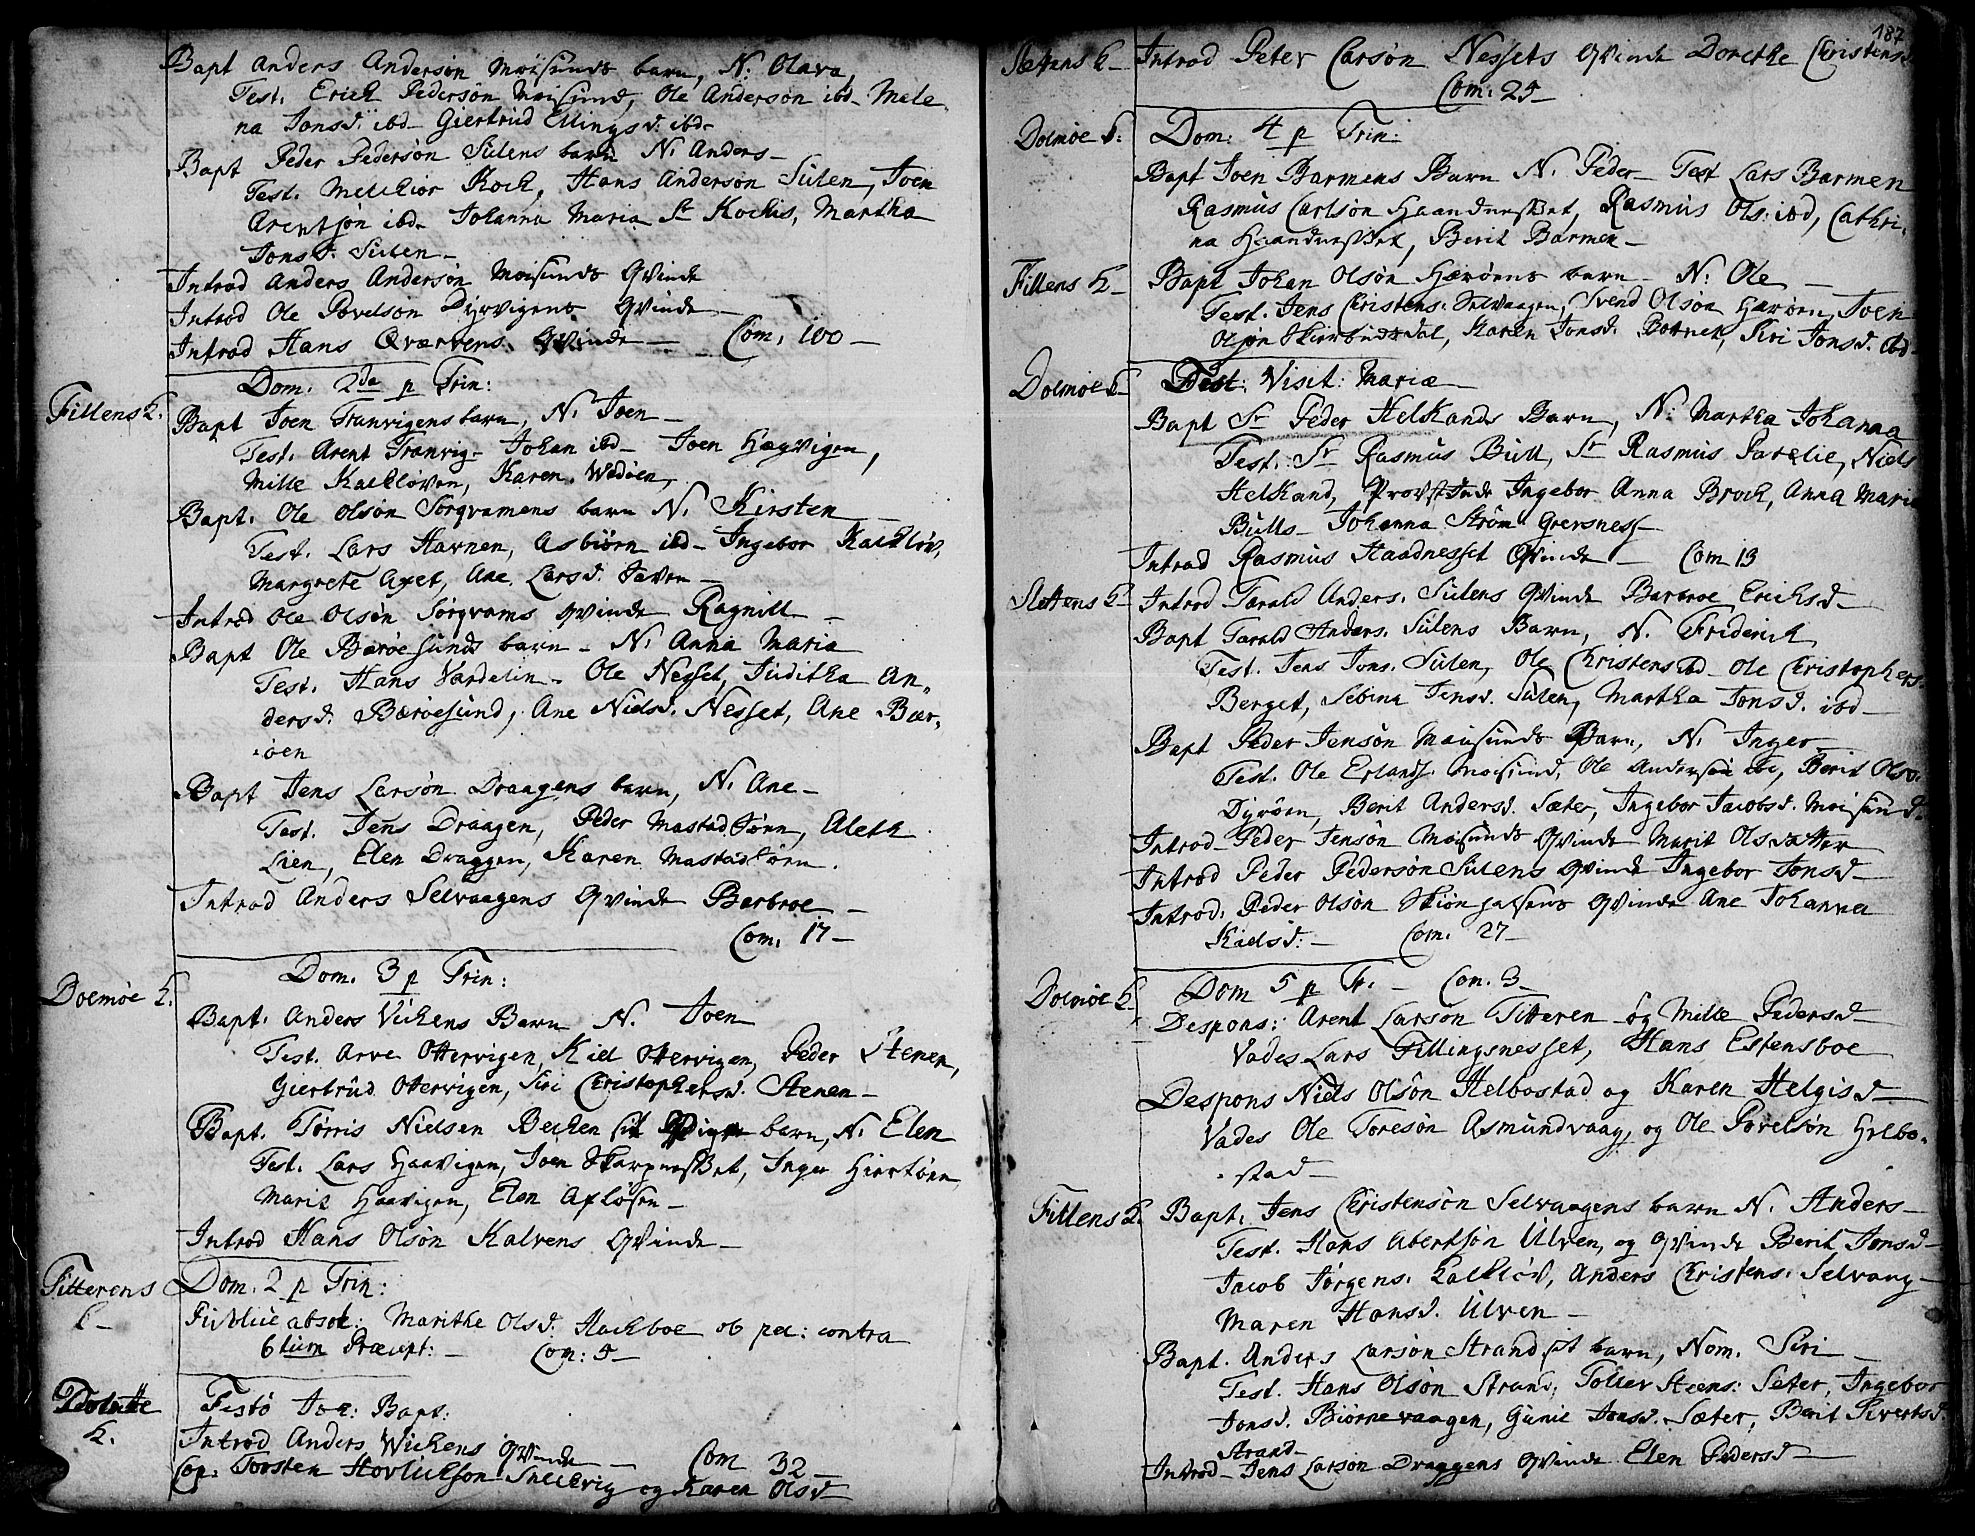 Bapt Anders Andersøn Moisunds barn, N: Olava,
Test. Erich Pedersøn Moisund, Ole Andersøn ibd. Male
na Jonsd. ibd. Giertrud Ellingsd. ibd.
Bapt Peder Pedersøn Sulens barn N. Anders
Test. Melchior Koch, Hans Andersøn Sulen, Joen
Arentsøn ibd. Johanna Maria Sl Kochs, Martha
Jonsd. Sulen
Introd Anders Andersøn Moisunds Qvinde
Introd Ole Povelsøn Dyrvigens Qvinde
Introd Hans Qværvens Qvinde Com: 100
Fillens K. Dom. 2da p Trin:
Bapt Joen Tranvigens barn, N. Joen
Test. Arent Tranvig, Johan ibd. Joen Hægvigen,
Mille Kalkløven, Karen Wedøen
Bapt. Ole Olsøn Sørgvamens barn N. Kirsten
Test. Lars Havnen, Asbiørn ibd. Ingebor Kalkløv,
Margrete Axet, Ane Larsd. Havn
Introd Ole Olsøn Sørgvams Qvinde Ragnill
Bapt Ole Bærøesunds barn N. Anna Maria
Test. Hans Vardelin. Ole Nesset, Juditha An,
dersd. Bærøesund, Ane Nielsd. Nesset, Ane Bær,
øen
Bapt Jens Larsøn Draagens barn, N. Ane
Test. Jens Draagen, Peder Mastad, Aleth
Lien, Elen Draggen, Karen
Introd Anders Selvaagens Qvinde Barbroe
Com: 17
Dolmøe K. Dom. 3 p Trin:
Bapt. Anders Vichens Barn N. Joen
Test. Arve Ottervigen, Kiel Ottervigen, Peder Stenen,
Giertrud Ottervigen, Siri Christophersd. Stenen
Bapt. Tørris Nielsen Bechen sit barn, N. Elen
Test. Lars Haavigen, Joen Inger
Marit Haavigen, Elen
Introd Hans Olsøn Kalvens Qvinde
Titterens K Dom. 2 p Trin:
Publice absol: Marithe Olsd. Hachboe ob pec: contra
6tum Præcept: Com: 5
K. Festo Joh: Bapt:
Introd Anders Wichens Qvinde Com 32
Cop: Torsten og Karen Olsd
187
Slettens K Introd Peter Larsøn Nessets Qvinde Dorethe Christensd
Com: 25
Dolmøe K: Dom: 4 p Trin:
Bapt Joen Barmens Barn N. Peder Test Lars Barmen
Rasmus Carlsøn Rasmus Ols. ibd, Cathri,
na Berit Barmen
Fillens K Bapt Johan Olsøn Hærøens barn N: Ole
Test. Jens Christens. Selvaagen, Svend Olsøn Hærøen, Joen
Olsøn Karen Jonsd. Siri Jonsd. ibd
Dolmøe K Fest: Visit: Mariæ
Bapt Sr Peder Helkands Barn, N: Martha Johanna
Test. Sr Rasmus Bull, Sr Rasmus Niels
Helkand, Ingebor Anna Broch, Anna Maria
Bulls Johanna Strøm Grersness
Introd Rasmus Haadnesset Qvinde Com 13
Slettens K Introd Tarald Anders. Sulens Qvinde Barbroe Erichsd
Bapt Tarald Anders. Sulens Barn, N. Friderich
Test. Jens Jons. Sulen, Ole Christens ibd Ole Christophers.
Berget, Sebina Jensd. Sulen, Martha Jonsd. ibd
Bapt Peder Jensøn Moisunds Barn, N. Inger
Test. Ole Erlands. Moisund, Ole Andersøn ibd, Berit Olsd.
Dyrøen, Berit Andersd. Sæter, Ingebor Jacobsd. Moisund.
Introd Peder Jensøn Moisunds Qvinde Marit Olsdatter
Introd Peder Pedersøn Sulens Qvinde Ingebor Jonsd
Introd. Peder Olsøn Qvinde Ane Johanna
Kielsd: Com. 27
Dolmøe K Dom 5 p Tr. Con. 3
Despons: Arent Larsøn Titteren og Mille Pedersd
Vades Lars Fillingsnesset, Hans Estensboe
Despons Niels Olsøn Helbostad og Karen Helgisd
Vades Ole Toresøn Asmundvaag, og Ole Povelsøn Helbo,
stad
Fillens K. Bapt. Jens Christensøn Selvaagens barn N. Anders
Test. Hans Abertsøn Ulven, og Qvinde Berit Jonsd
Jacob Jørgens. Kalkløv, Anders Christens. Selvaag
Maren Hansd. Ulven
Bapt. Anders Larsøn Strand st barn, Nom. Siri
Test. Hans Olsøn Strand, Toller Steens: Seter, Ingebor
Jonsd. Biørnevaagen, Gunil Jonsd. Sæter, Berit Sivertsd.
Strand
Introd Jens Larsøn Draggens Qvinde Elen Pedersd